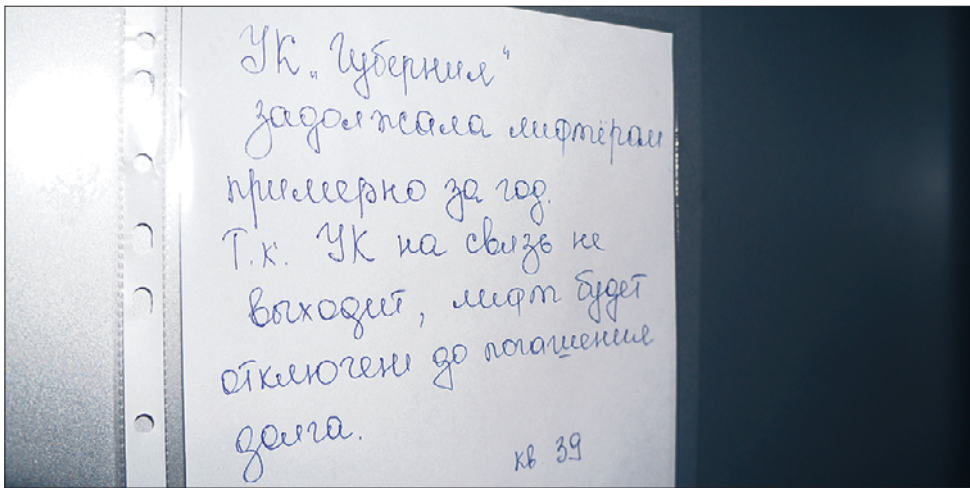 УК „Губерния“
задолжала лифтёрам
примерно за год.
Т.к. УК на связь не
выходит, лифт будет
отключен до погашения
долга.
кв 39